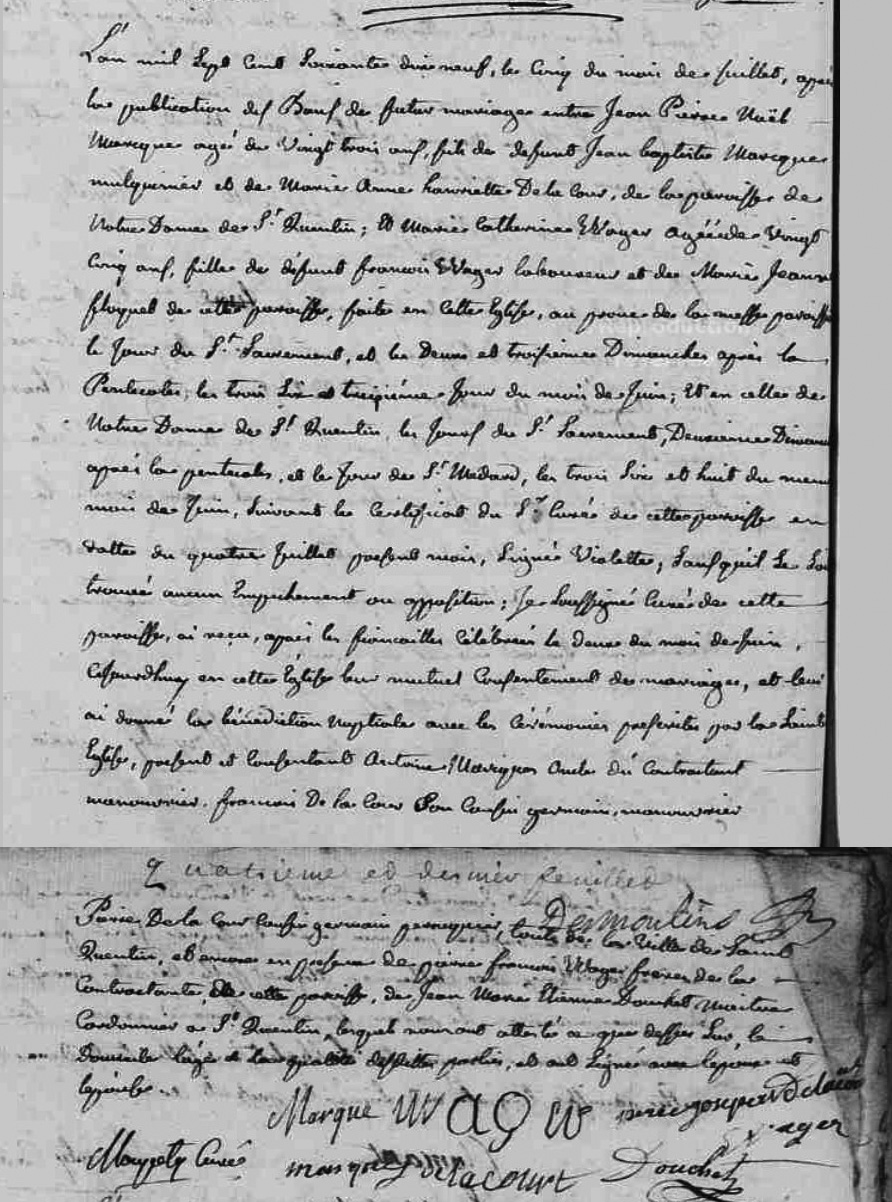 L'an mil Sept Cent Soixante dix neuf, le Cinq du mois de Juillet, après
la publication des Bans de futur mariage entre Jean Pierre Noël
Marcque agé de Vingt trois ans, fils de defunt Jean baptiste Marcque
mulquinier et de Marie Anne henriette De la Cour, de la paroisse de
Notre Dame de St Quentin; Et Marie Catherine Wager agéé de Vingt
Cinq ans, fille de défunt francois Wager laboureur et de Marie Jeanne
floquet de cette paroisse, faite en cette Eglise, au prone de la messe paroiss
le Jour du St Sacrement, et les Deux et troisieme Dimanches après la
Pentecote, les trois Six et treizième Jour du mois de Juin; Et en celle de
Notre Dame de St Quentin, les Jours du St Sacrement, Deuxieme Diman
après la pentecote, et le Jour de St Medard, les trois Six et huit du meme
mois de Juin, Suivant le Certificat du Sr Curé de cette paroisse en
datte du quatre Juillet present mois, Signé Violette, Sans qu'il Se Soi
trouvé aucun Empechement ou opposition; Je Soussigné Curé de cette
paroisse, ai reçu, après les fiancailles Célébrées le deux du mois de Juin,
Cejourdhuy en cette Eglise leur mutuel Consentement de mariage, et leur
ai donné la bénédiction Nuptiale avec les Cérémonies prescrites par la Sainte
Eglise, present et Consentant Antoine Marcque Oncle du Contractant
manouvrier, francois De la Cour Son Cousin germain, manouvrier
quatrieme et dernier feuillet
Desmoulins
Pierre De la Cour Cousin germain perruquier, touts de la Ville de Saint
Quentin, et encore en presence de pierre francois Wager frere de la
Contractante, de cette paroisse, de Jean Marie Etienne Douchet Maitre
Cordonnier a St Quentin, lesquels nous ont attesté ce que dessus Sur le
Domicile l'age et la qualité desdittes parties, et ont Signé avec lepoux et
lepouse.
Marque Wager pierre joseph Delacour
wager
Curé marque delacourt Douchet